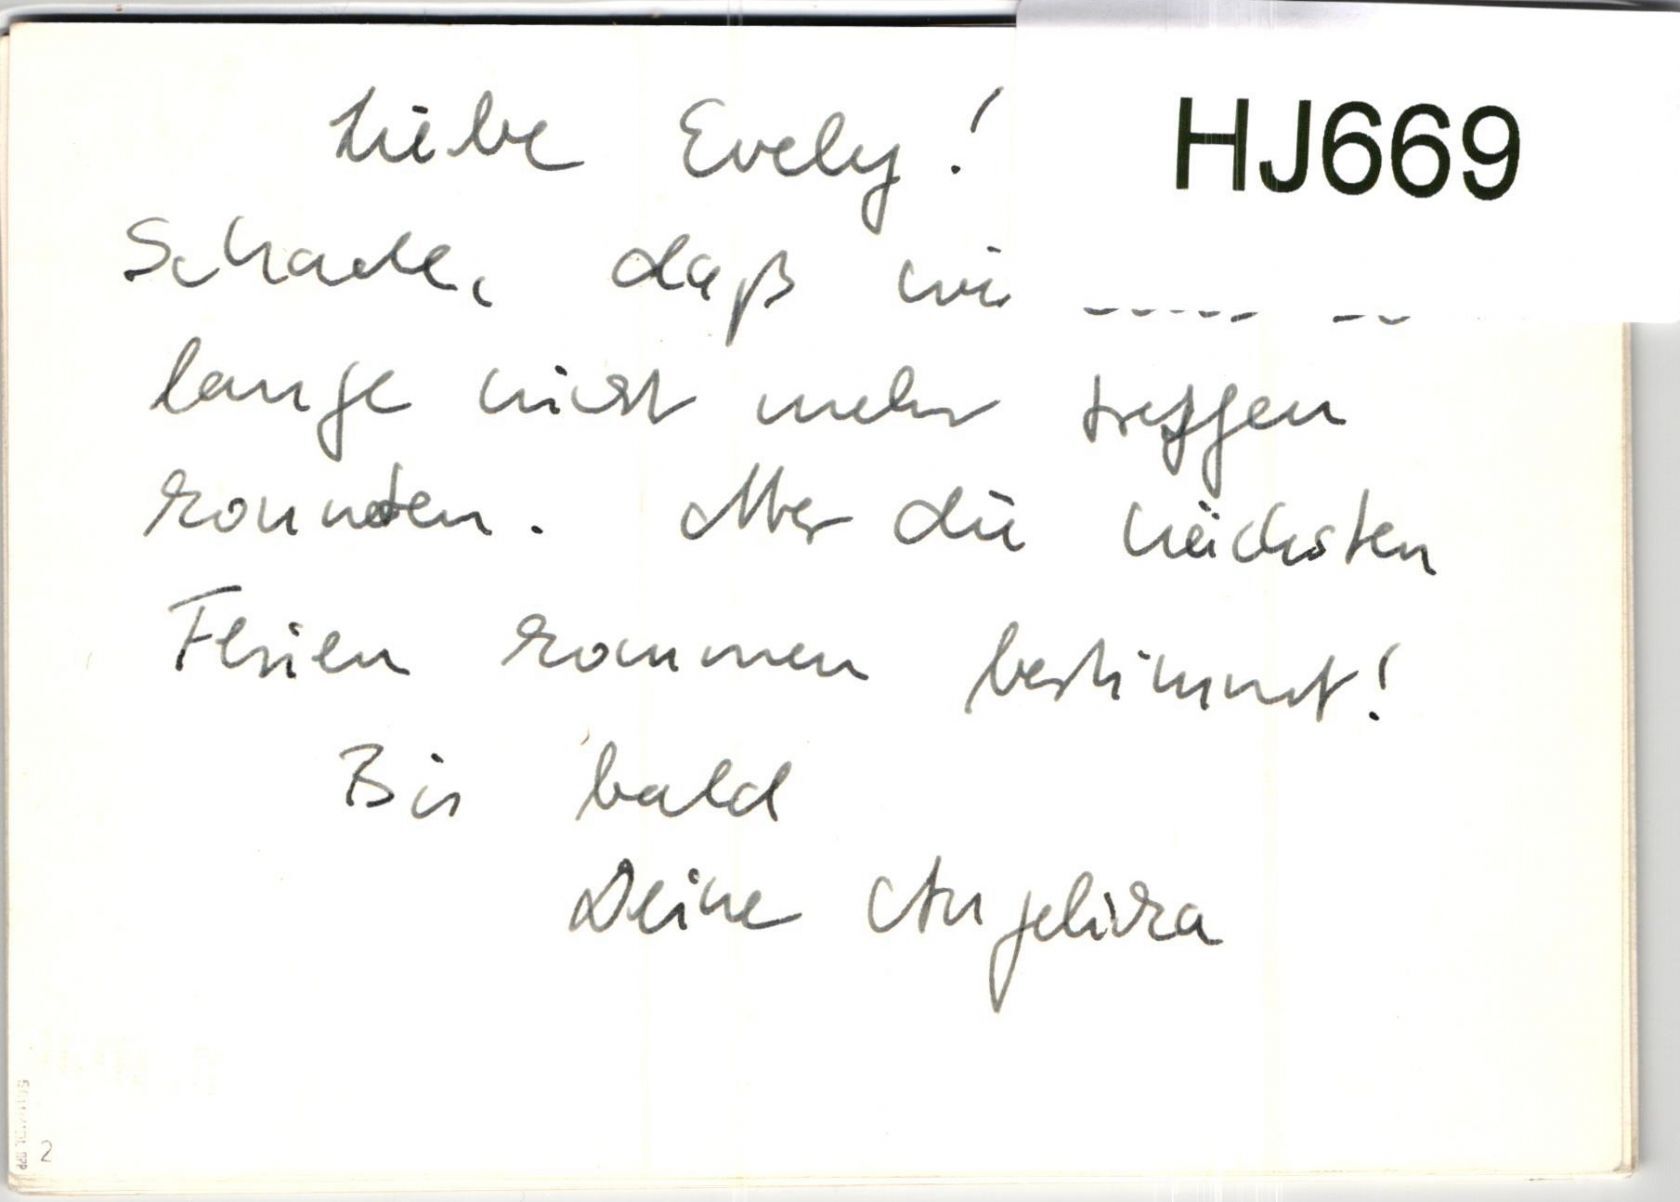 Liebe Evely!
HJ669
Schade, daß wir
lange nicht mehr treffen
konnten. Aber die nächsten
Ferien kommen bestimmt!
Bis bald
Deine Angelika
2